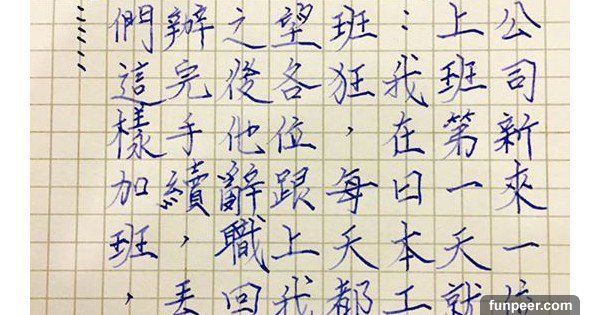 公司新來一位
上班第一天就
：我在日本工
班狂，每天都
望各位跟上我
之後他辭職回
辦完手續，丟
們這樣加班，
……
funpeer.com